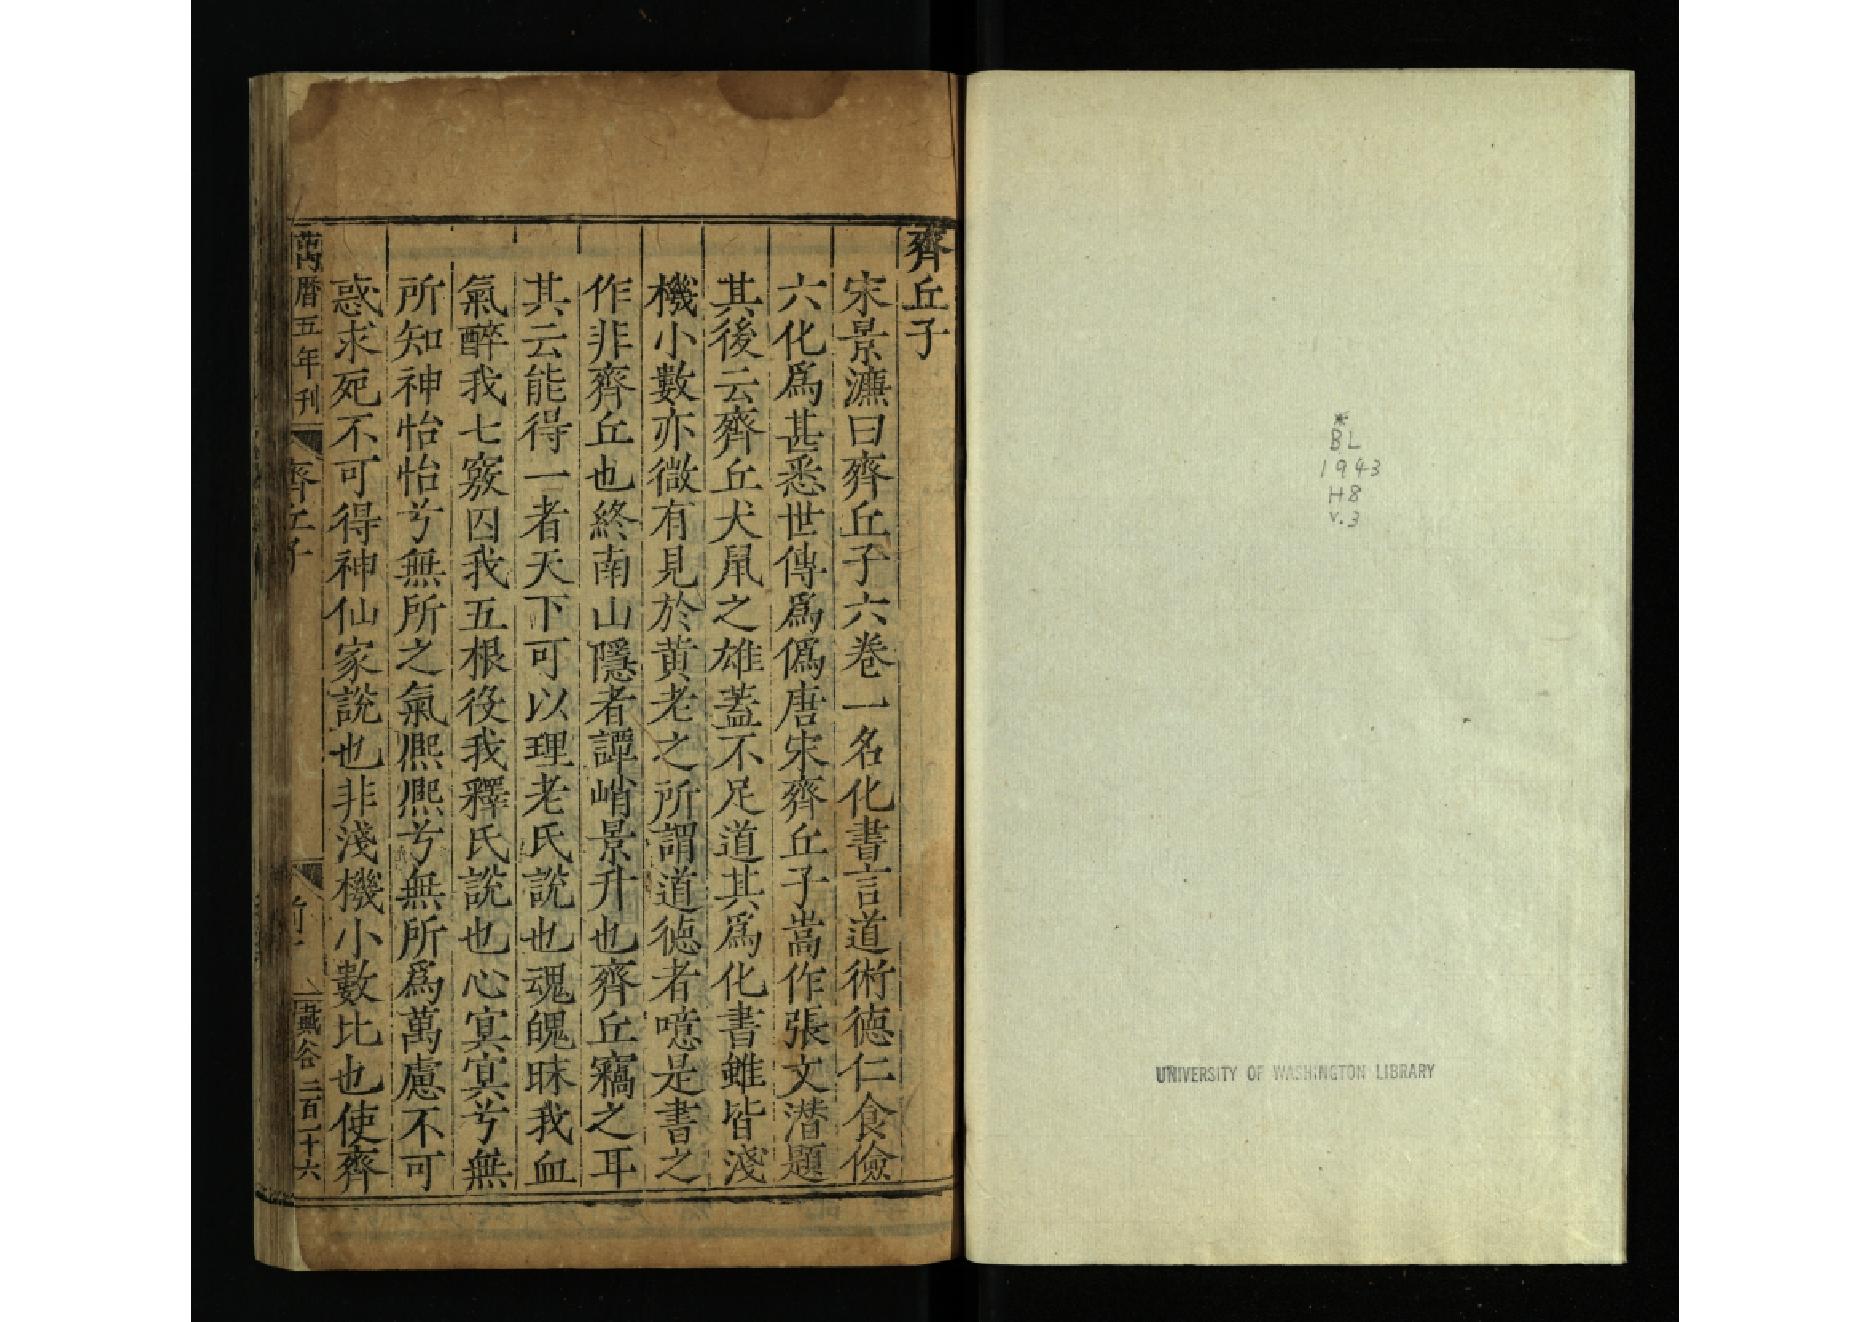 * 
BL
1943
H8
v.3
UNIVERSITY OF WASHINGTON LIBRARY
齊丘子
宋景濂曰齊丘子六卷一名化書言道術德仁食儉
六化爲甚悉世傳爲僞唐宋齊丘子嵩作張文潛題
其後云齊丘犬鼠之雄蓋不足道其爲化書雖皆淺
機小數亦微有見於黃老之所謂道德者噫是書之
作非齊丘也終南山隱者譚峭景升也齊丘竊之耳
其云能得一者天下可以理老氏說也魂魄昧我血
氣醉我七竅囚我五根役我釋氏說也心冥冥兮無
所知神怡怡兮無所之氣熈熈兮無所爲萬慮不可
惑求死不可得神仙家說也非淺機小數比也使齊
萬曆五年刊
齊丘子
二百十六